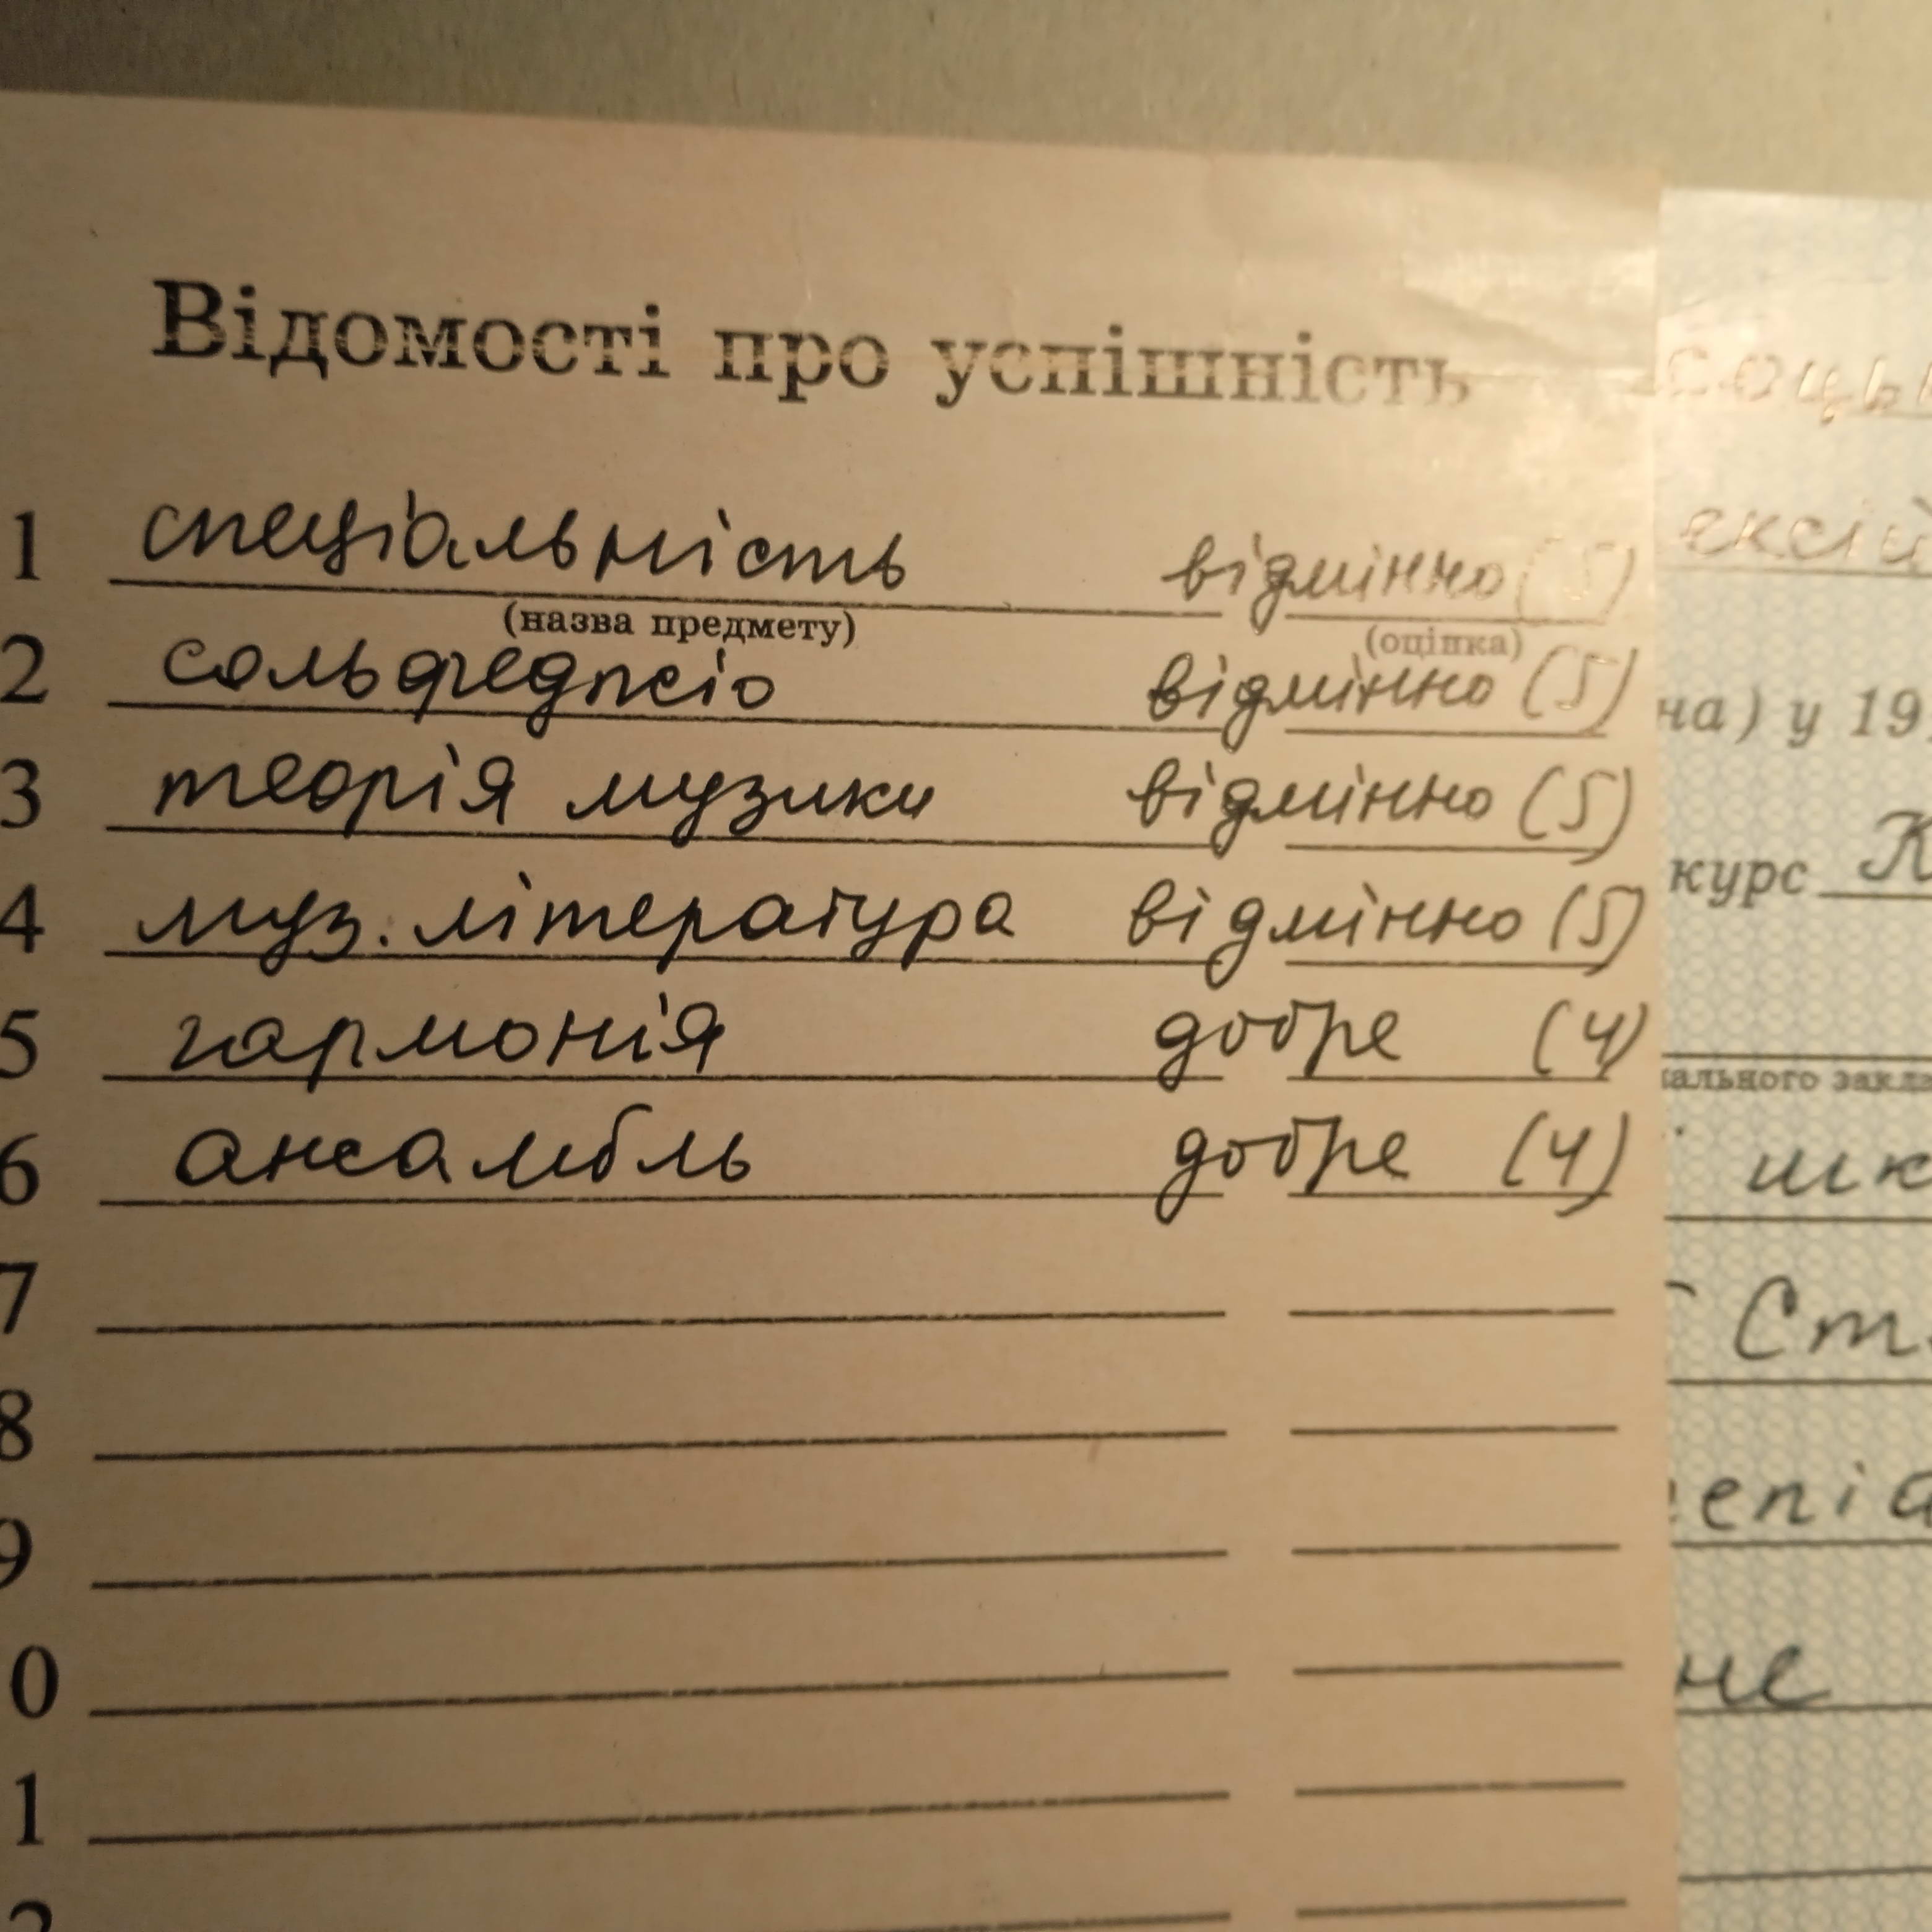 Відомості про успішність
1 спеціальність відмінно (5)
(назва предмету) (оцінка)
2 сольфеджіо відмінно (5)
3 теорія музики відмінно (5)
4 муз. література відмінно (5)
5 гармонія добре (4)
6 ансамбль добре (4)
7
8
9
0
1
2
на) у 19
курс К
ального закла
шк
Ст
епіа
не